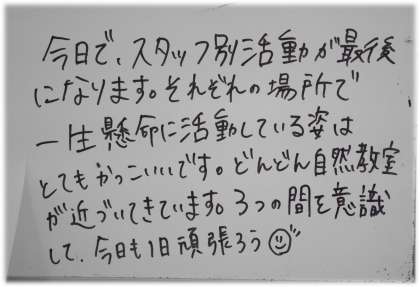 今日で、スタッフ別活動が最後
になります。それぞれの場所で
一生懸命に活動している姿は
とてもかっこいいです。どんどん自然教室
が近づいてきています。3つの間を意識
して、今日も1日頑張ろう